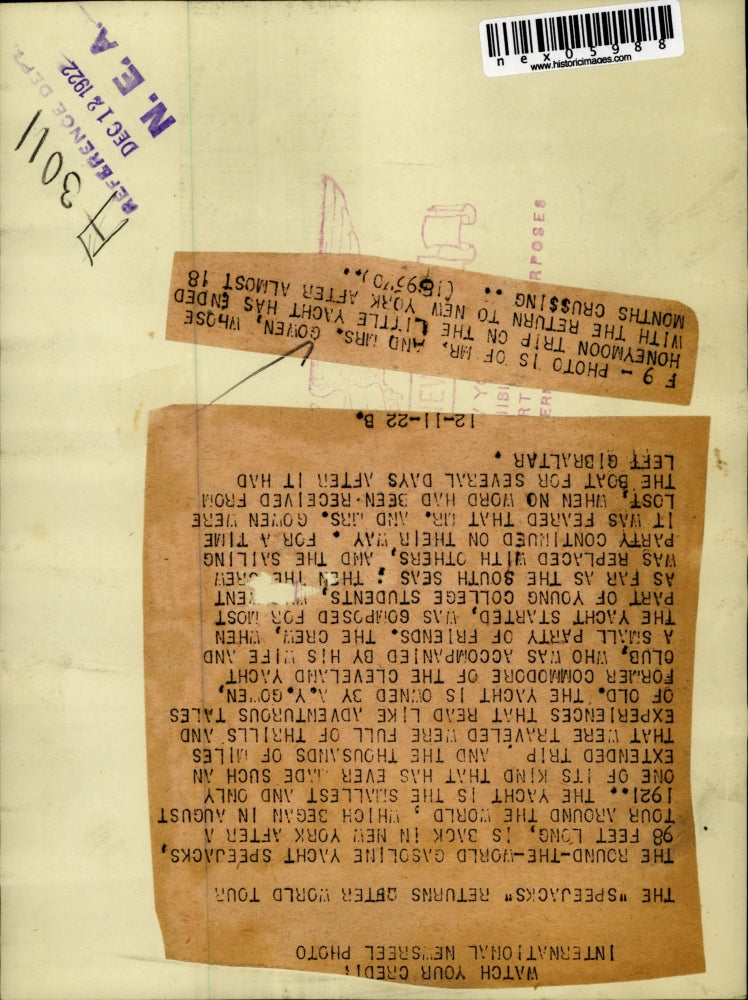 nex05988
www.historicimages.com
REFERENCE DEPT.
DEC 12 1922
N. E. A.
3011
RPOSES
WATCH YOUR CREDIT
INTERNATIONAL NEWSREEL PHOTO
THE "SPEEJACKS" RETURNS AFTER WORLD TOUR
THE ROUND-THE-WORLD GASOLINE YACHT SPEEJACKS,
98 FEET LONG, IS BACK IN NEW YORK AFTER A
TOUR AROUND THE WORLD, WHICH BEGAN IN AUGUST
1921.. THE YACHT IS THE SMALLEST AND ONLY
ONE OF ITS KIND THAT HAS EVER MADE SUCH AN
EXTENDED TRIP. AND THE THOUSANDS OF MILES
THAT WERE TRAVELED WERE FULL OF THRILLS AND
EXPERIENCES THAT READ LIKE ADVENTUROUS TALES
OF OLD. THE YACHT IS OWNED BY A.Y. GOWEN,
FORMER COMMODORE OF THE CLEVELAND YACHT
CLUB, WHO WAS ACCOMPANIED BY HIS WIFE AND
A SMALL PARTY OF FRIENDS. THE CREW, WHEN
THE YACHT STARTED, WAS COMPOSED FOR MOST
PART OF YOUNG COLLEGE STUDENTS, WENT
AS FAR AS THE SOUTH SEAS; THEN THE CREW
WAS REPLACED WITH OTHERS, AND THE SAILING
PARTY CONTINUED ON THEIR WAY. FOR A TIME
IT WAS FEARED THAT MR. AND MRS. GOWEN WERE
LOST, WHEN NO WORD HAD BEEN RECEIVED FROM
THE BOAT FOR SEVERAL DAYS AFTER IT HAD
LEFT GIBRALTAR.
12-11-22 B.
F 9 - PHOTO IS OF MR. AND MRS. GOWEN, WHOSE
HONEYMOON TRIP ON THE LITTLE YACHT HAS ENDED
WITH THE RETURN TO NEW YORK AFTER ALMOST 18
MONTHS CRUSSING ..